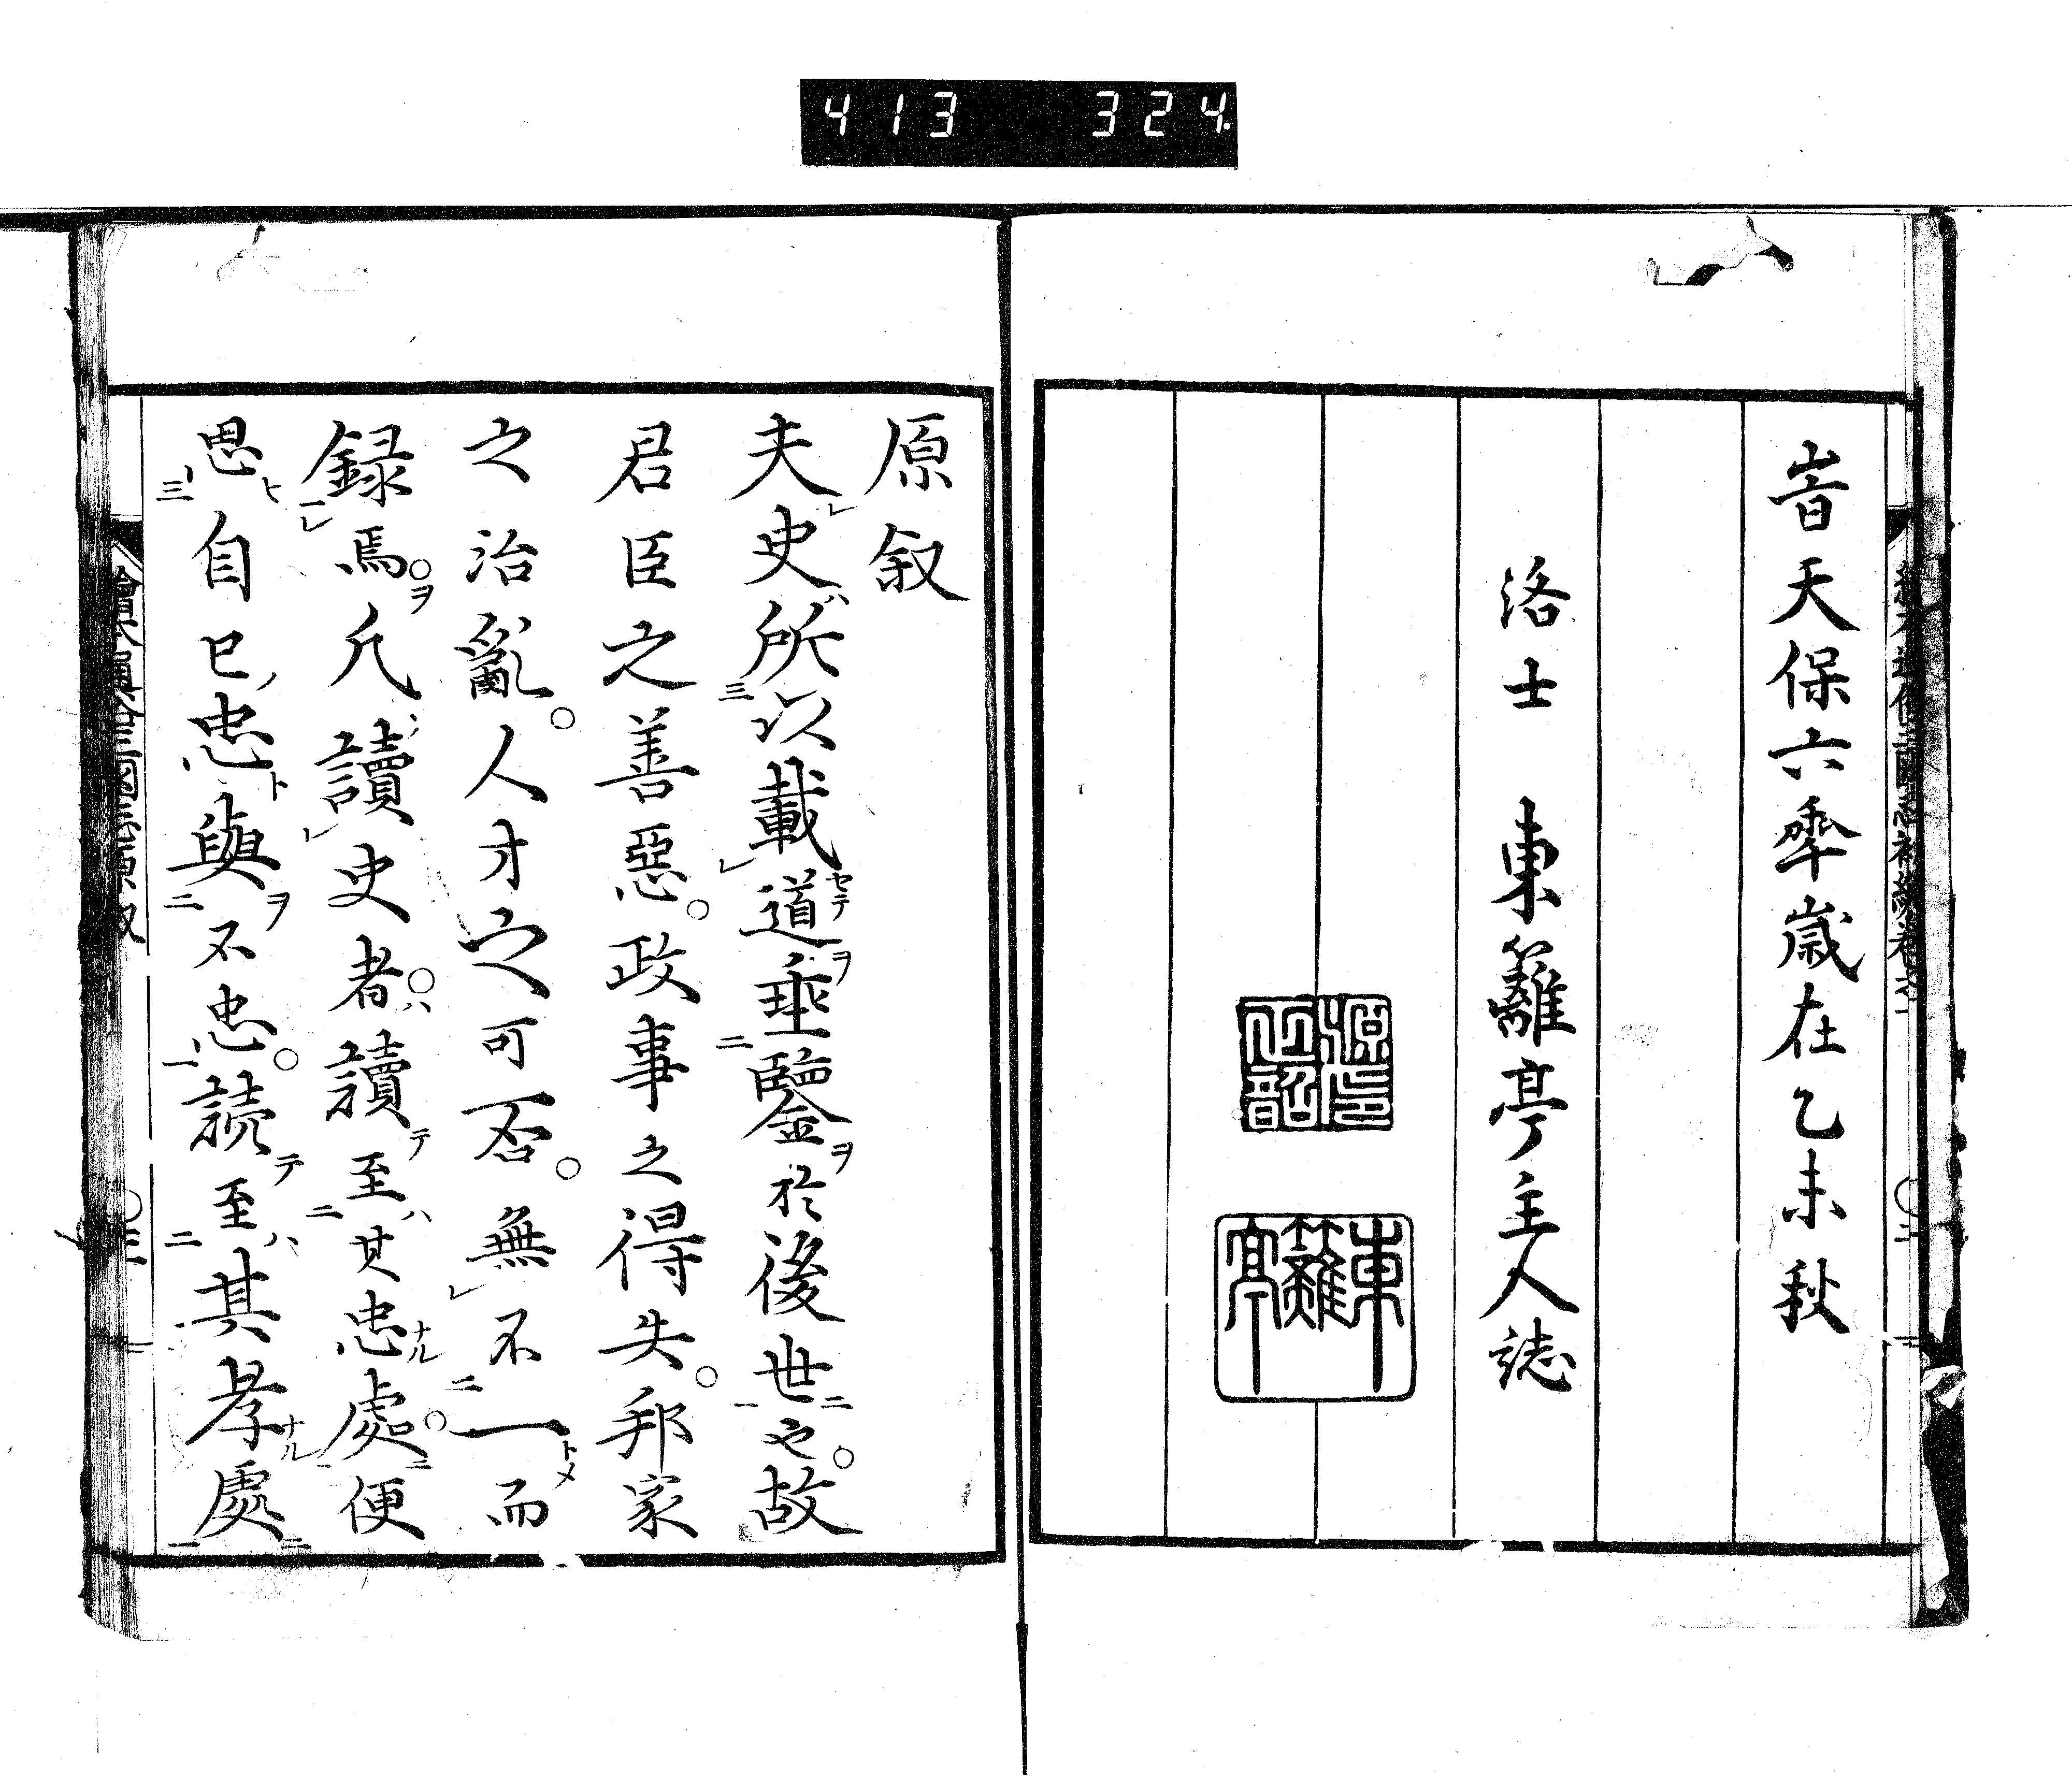 413 324
峕天保六秊歳在乙未秋
洛士 東籬亭主人誌
東籬亭
原叙
夫史所以載道垂鑒於後世也。故
君臣之善惡。政事之得失。邦家
之治亂。人才之可否。無不一而
録焉。凡讀史者。讀至其忠處。便
思自己忠與不忠。読至其孝處